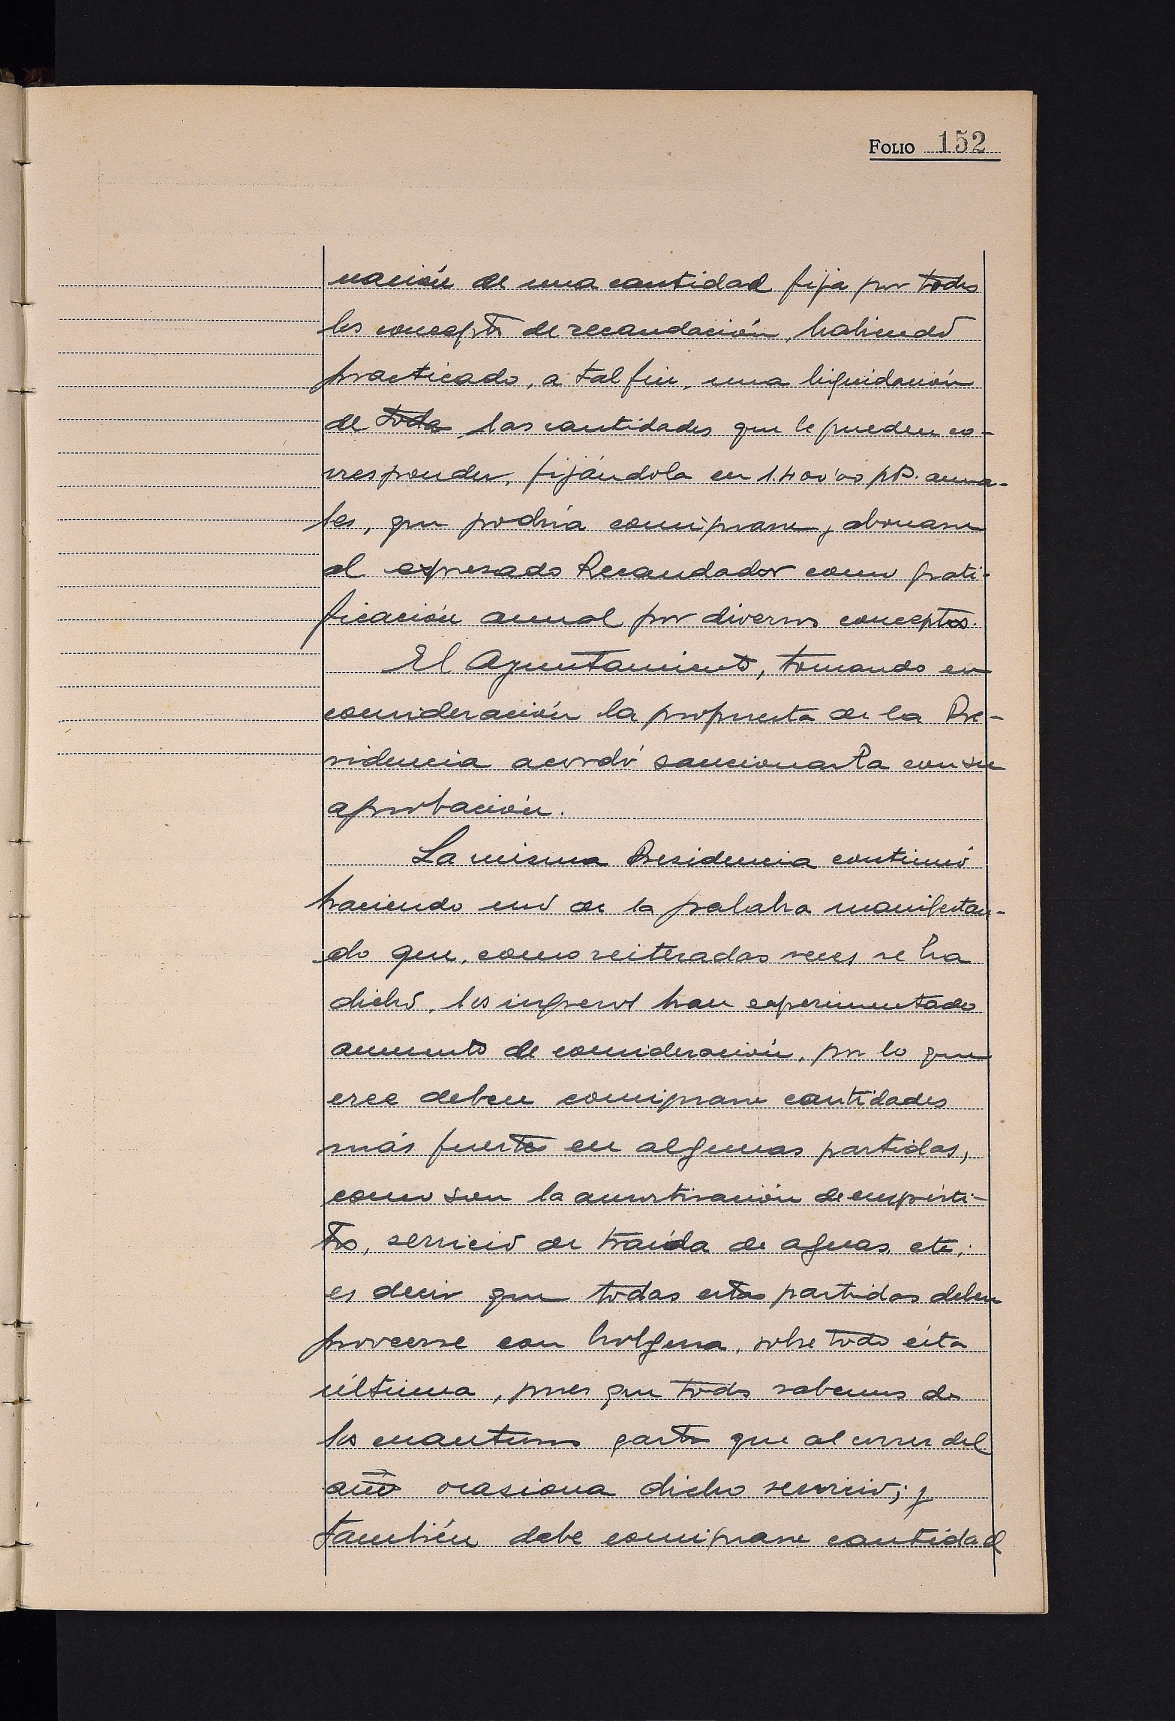 FOLIO 152
nación de una cantidad fija por todos
los conceptos de recaudación, habiendo
practicado, a tal fin, una liquidación
de toda las cantidades que le pueden co-
rresponder, fijándola en 1.400'00 pts. anua-
les, que podría consignarse y abonarse
al expresado Recaudador como grati-
ficación anual por diversos conceptos.
El Ayuntamiento, tomando en
consideración la propuesta de la Pre-
sidencia acordó sancionarla con su
aprobación.
La misma Presidencia continuó
haciendo uso de la palabra manifestan-
do que, como reiteradas veces se ha
dicho, los ingresos han experimentado
aumento de consideración, por lo que
cree deben consignarse cantidades
más fuertes en algunas partidas,
como son la amortización de emprésti-
tos, servicio de traída de aguas etc;
es decir que todas estas partidas deben
proveerse con holgura, sobre todo ésta
última, pues que todos sabemos de
los cuantiosos gastos que al correr del
año ocasiona dicho servicio; y
también debe consignarse cantidad